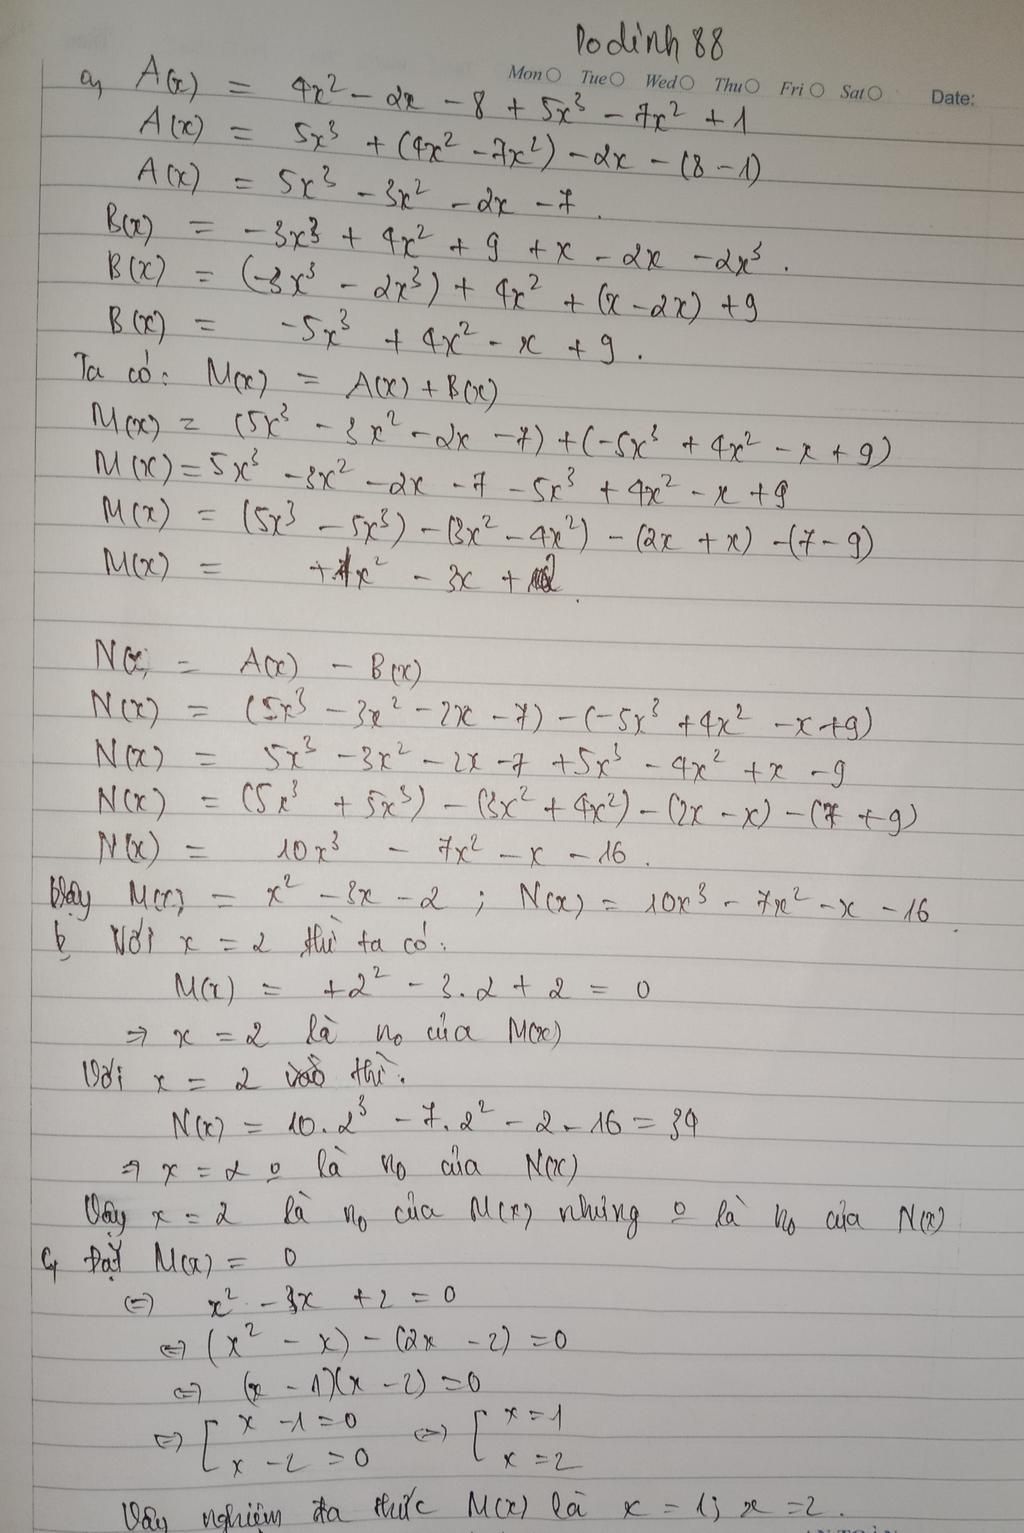 Dodinh 88
Mon Tue Wed Thu Fri Sat Date:
a, A(x) = 4x² - 2x - 8 + 5x³ - 7x² + 1
A(x) = 5x³ + (4x² - 7x²) - 2x - (8 - 1)
A(x) = 5x³ - 3x² - 2x - 7.
B(x) = -3x³ + 4x² + 9 + x - 2x - 2x³.
B(x) = (-3x³ - 2x³) + 4x² + (x - 2x) + 9
B(x) = -5x³ + 4x² - x + 9.
Ta có: M(x) = A(x) + B(x)
M(x) = (5x³ - 3x² - 2x - 7) + (-5x³ + 4x² - x + 9)
M(x) = 5x³ - 3x² - 2x - 7 - 5x³ + 4x² - x + 9
M(x) = (5x³ - 5x³) - (3x² - 4x²) - (2x + x) - (7 - 9)
M(x) = + x² - 3x + 2.
N(x) = A(x) - B(x)
N(x) = (5x³ - 3x² - 2x - 7) - (-5x³ + 4x² - x + 9)
N(x) = 5x³ - 3x² - 2x - 7 + 5x³ - 4x² + x - 9
N(x) = (5x³ + 5x³) - (3x² + 4x²) - (2x - x) - (7 + 9)
N(x) = 10x³ - 7x² - x - 16.
Vậy M(x) = x² - 3x - 2 ; N(x) = 10x³ - 7x² - x - 16.
b, Với x = 2 thì ta có:
M(x) = +2² - 3.2 + 2 = 0
⇒ x = 2 là no của M(x)
Với x = 2 thì:
N(x) = 10.2³ - 7.2² - 2 - 16 = 34
⇒ x = 2 o là no của N(x)
Vậy x = 2 là no của M(x) nhưng o là no của N(x)
c, Đặt M(x) = 0
⇔ x² - 3x + 2 = 0
⇔ (x² - x) - (2x - 2) = 0
⇔ (x - 1)(x - 2) = 0
⇔ [ x - 1 = 0 ⇔ [ x = 1
x - 2 = 0 x = 2
Vậy nghiệm đa thức M(x) là x = 1; x = 2.